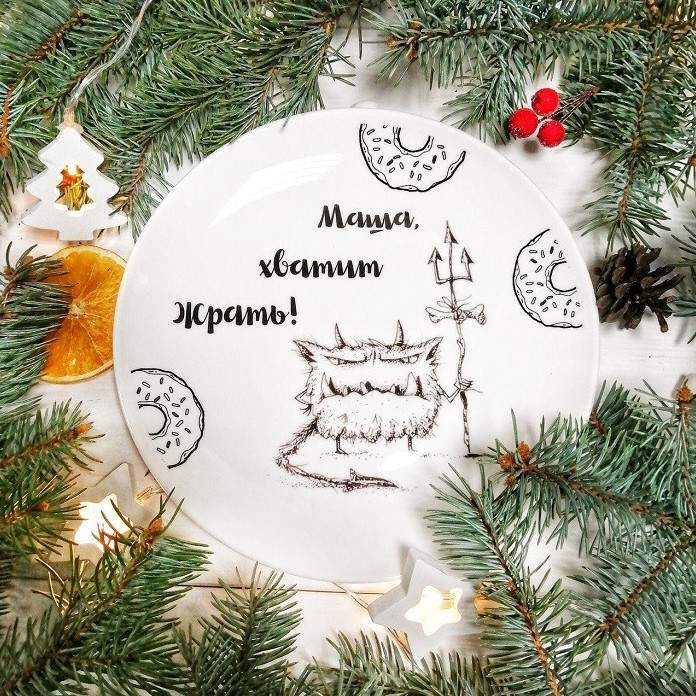 Маша,
хватит
Жрать!